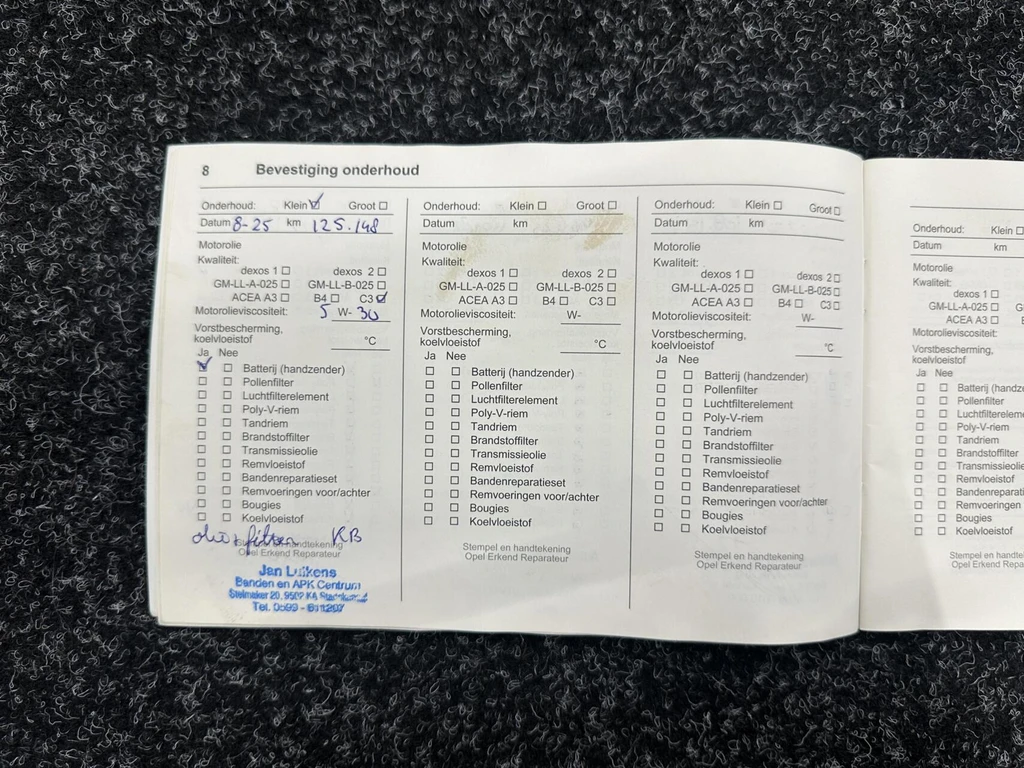 8 Bevestiging onderhoud
Onderhoud: Klein Groot
Datum 8-25 km 125.148
Motorolie
Kwaliteit:
dexos 1 dexos 2
GM-LL-A-025 GM-LL-B-025
ACEA A3 B4 C3
Motorolieviscositeit: 5 W- 30
Vorstbescherming,
koelvloeistof °C
Ja Nee
Batterij (handzender)
Pollenfilter
Luchtfilterelement
Poly-V-riem
Tandriem
Brandstoffilter
Transmissieolie
Remvloeistof
Bandenreparatieset
Remvoeringen voor/achter
Bougies
Koelvloeistof
KB
Stempel en handtekening
Opel Erkend Reparateur
Jan Luikens
Banden en APK Centrum
Stelmaker 20, 9502 KA
Tel. 0599 -
Onderhoud: Klein Groot
Datum km
Motorolie
Kwaliteit:
dexos 1 dexos 2
GM-LL-A-025 GM-LL-B-025
ACEA A3 B4 C3
Motorolieviscositeit: W-
Vorstbescherming,
koelvloeistof °C
Ja Nee
Batterij (handzender)
Pollenfilter
Luchtfilterelement
Poly-V-riem
Tandriem
Brandstoffilter
Transmissieolie
Remvloeistof
Bandenreparatieset
Remvoeringen voor/achter
Bougies
Koelvloeistof
Stempel en handtekening
Opel Erkend Reparateur
Onderhoud: Klein Groot
Datum km
Motorolie
Kwaliteit:
dexos 1 dexos 2
GM-LL-A-025 GM-LL-B-025
ACEA A3 B4 C3
Motorolieviscositeit: W-
Vorstbescherming,
koelvloeistof °C
Ja Nee
Batterij (handzender)
Pollenfilter
Luchtfilterelement
Poly-V-riem
Tandriem
Brandstoffilter
Transmissieolie
Remvloeistof
Bandenreparatieset
Remvoeringen voor/achter
Bougies
Koelvloeistof
Stempel en handtekening
Opel Erkend Reparateur
Onderhoud: Klein
Datum km
Motorolie
Kwaliteit:
dexos 1
GM-LL-A-025 G
ACEA A3
Motorolieviscositeit:
Vorstbescherming,
koelvloeistof
Ja Nee
Batterij (handz
Pollenfilter
Luchtfilterelem
Poly-V-riem
Tandriem
Brandstoffilter
Transmissieolie
Remvloeistof
Bandenreparati
Remvoeringen
Bougies
Koelvloeistof
Stempel en handte
Opel Erkend Repa